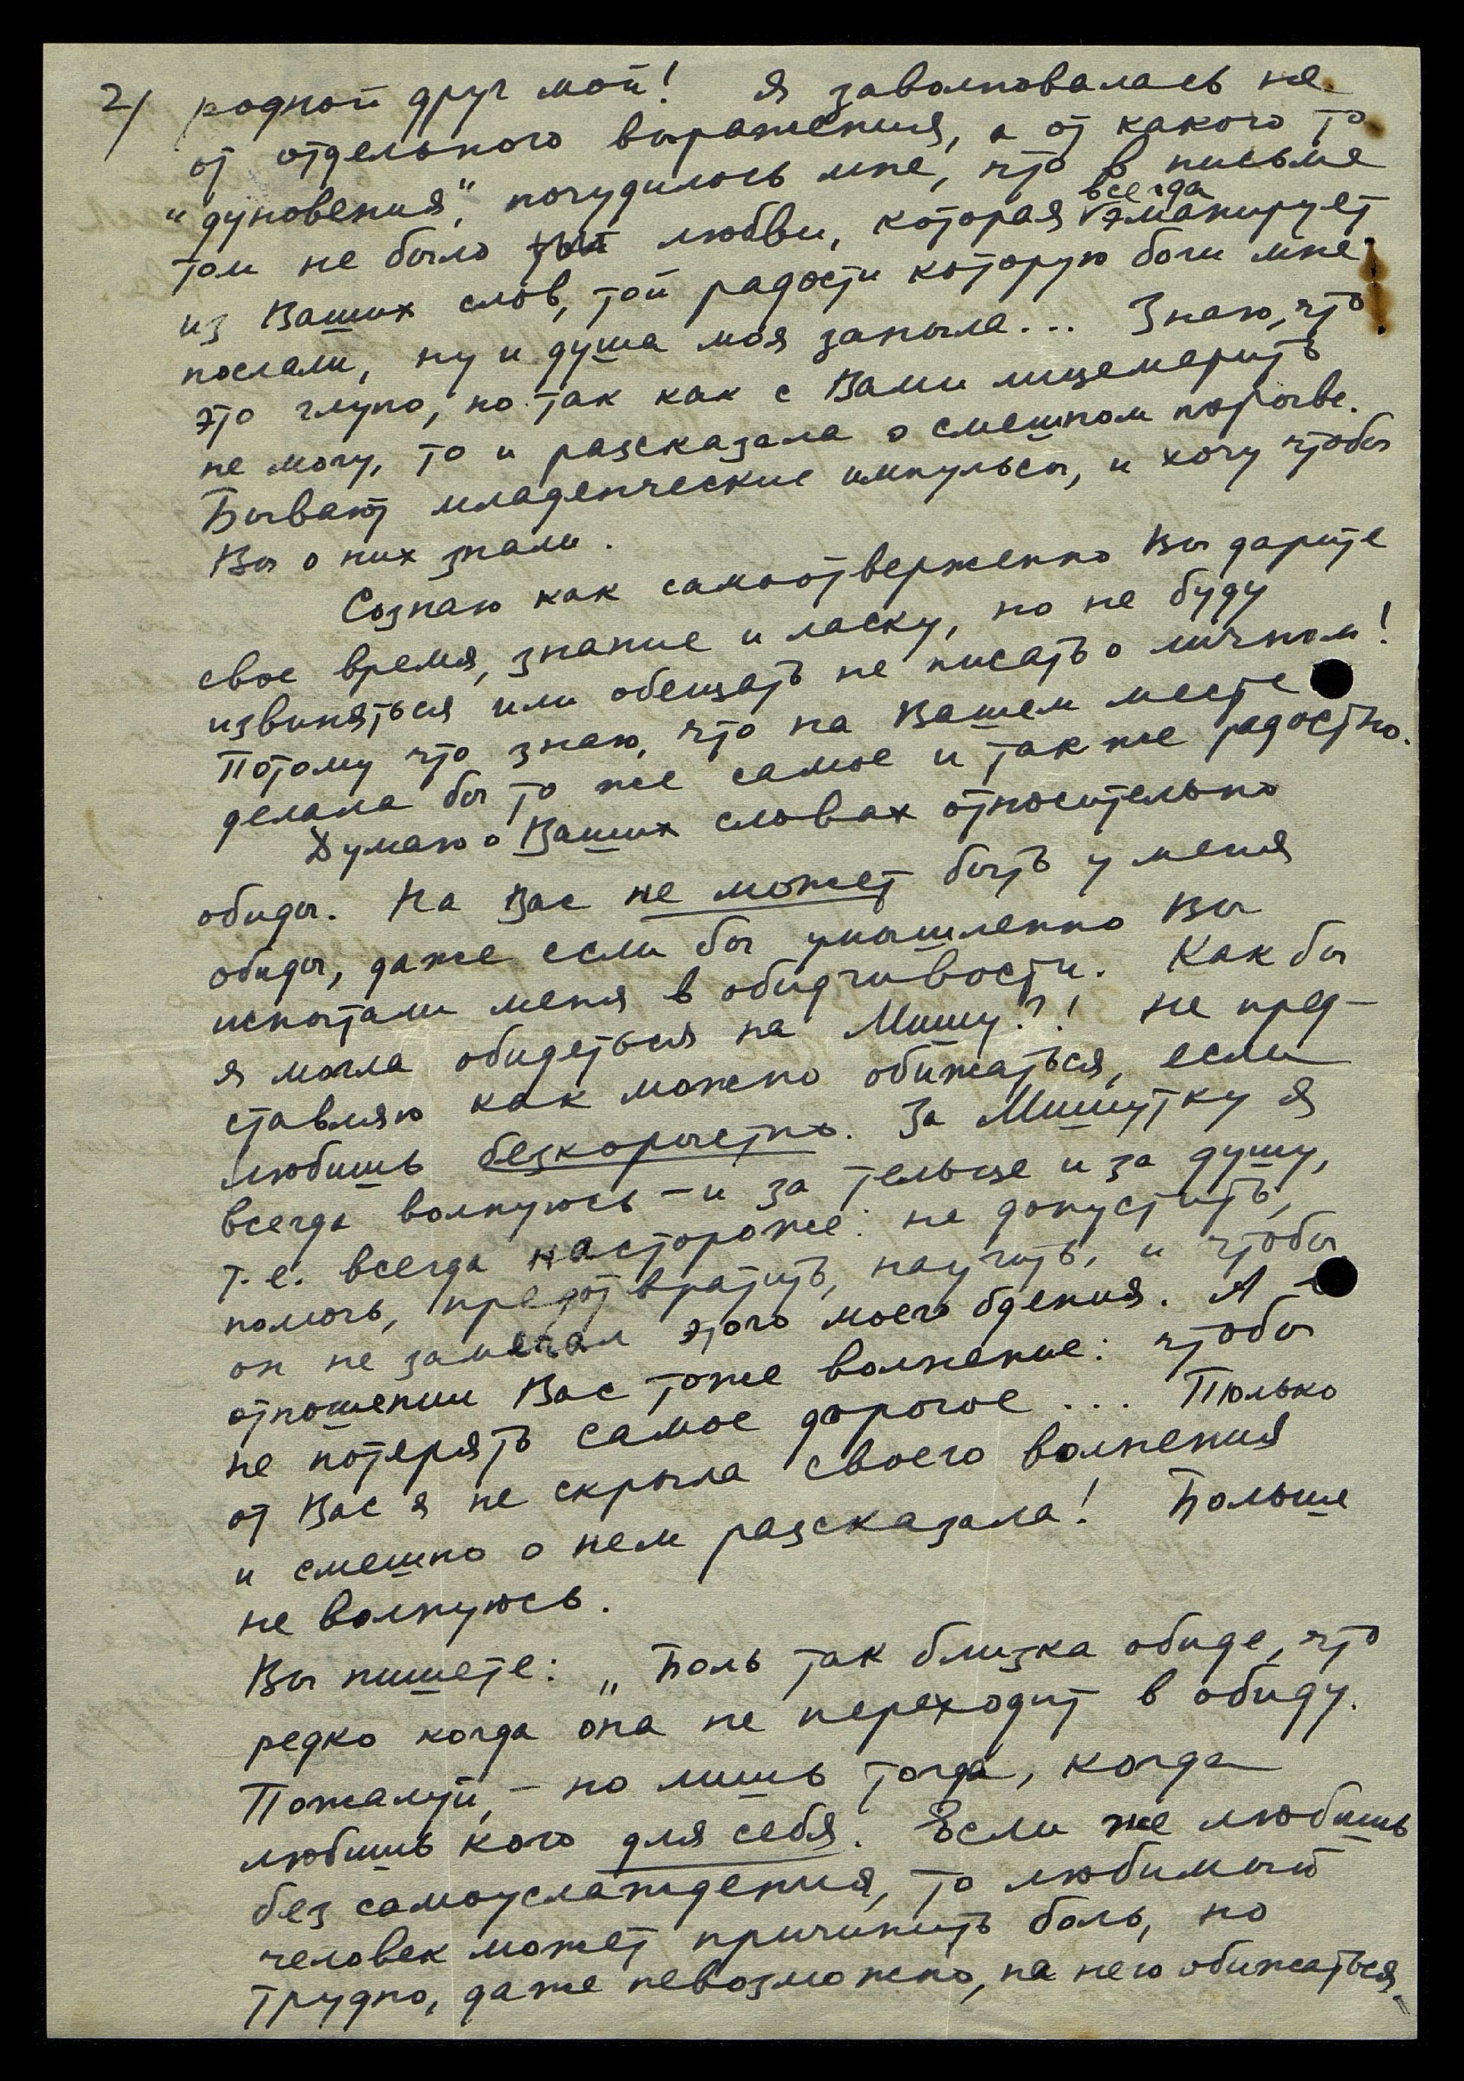 2/ родной друг мой! Я заволновалась не
от отдельного выражения, а от какого то
"дуновения", почудилось мне, что в письме
том не было той любви, которая всегда эманирует
из Ваших слов, той радости которую боги мне
послали, ну и душа моя заныла... Знаю, что
это глупо, но так как с Вами лицемерить
не могу, то и разсказала о смешном порыве.
Бывают младенческие импульсы, и хочу чтобы
Вы о них знали.
Сознаю как самоотверженно Вы дарите
свое время, знание и ласку, но не буду
извиняться или обещать не писать о личном!
Потому что знаю, что на Вашем месте
делала бы то же самое и так же радостно.
Думаю о Ваших словах относительно
обиды. На Вас не может быть у меня
обиды, даже если бы умышленно Вы
испытали меня в обидчивости. Как бы
я могла обидеться на Мишу?! Не пред-
ставляю как можно обижаться, если
любишь безкорыстно. За Мишутку я
всегда волнуюсь – и за тельце и за душу,
т.е. всегда настороже: не допустить,
помочь, предотвратить, научить, и чтобы
он не замечал этого моего бдения. А в
отношении Вас тоже волнение: чтобы
не потерять самое дорогое... Только
от Вас я не скрыла своего волнения
и смешно о нем разсказала! Больше
не волнуюсь.
Вы пишете: „Боль так близка обиде, что
редко когда она не переходит в обиду.
Пожалуй, – но лишь тогда, когда
любишь кого для себя. Если же любишь
без самоуслаждения, то любимый
человек может причинить боль, но
трудно, даже невозможно, на него обижаться."